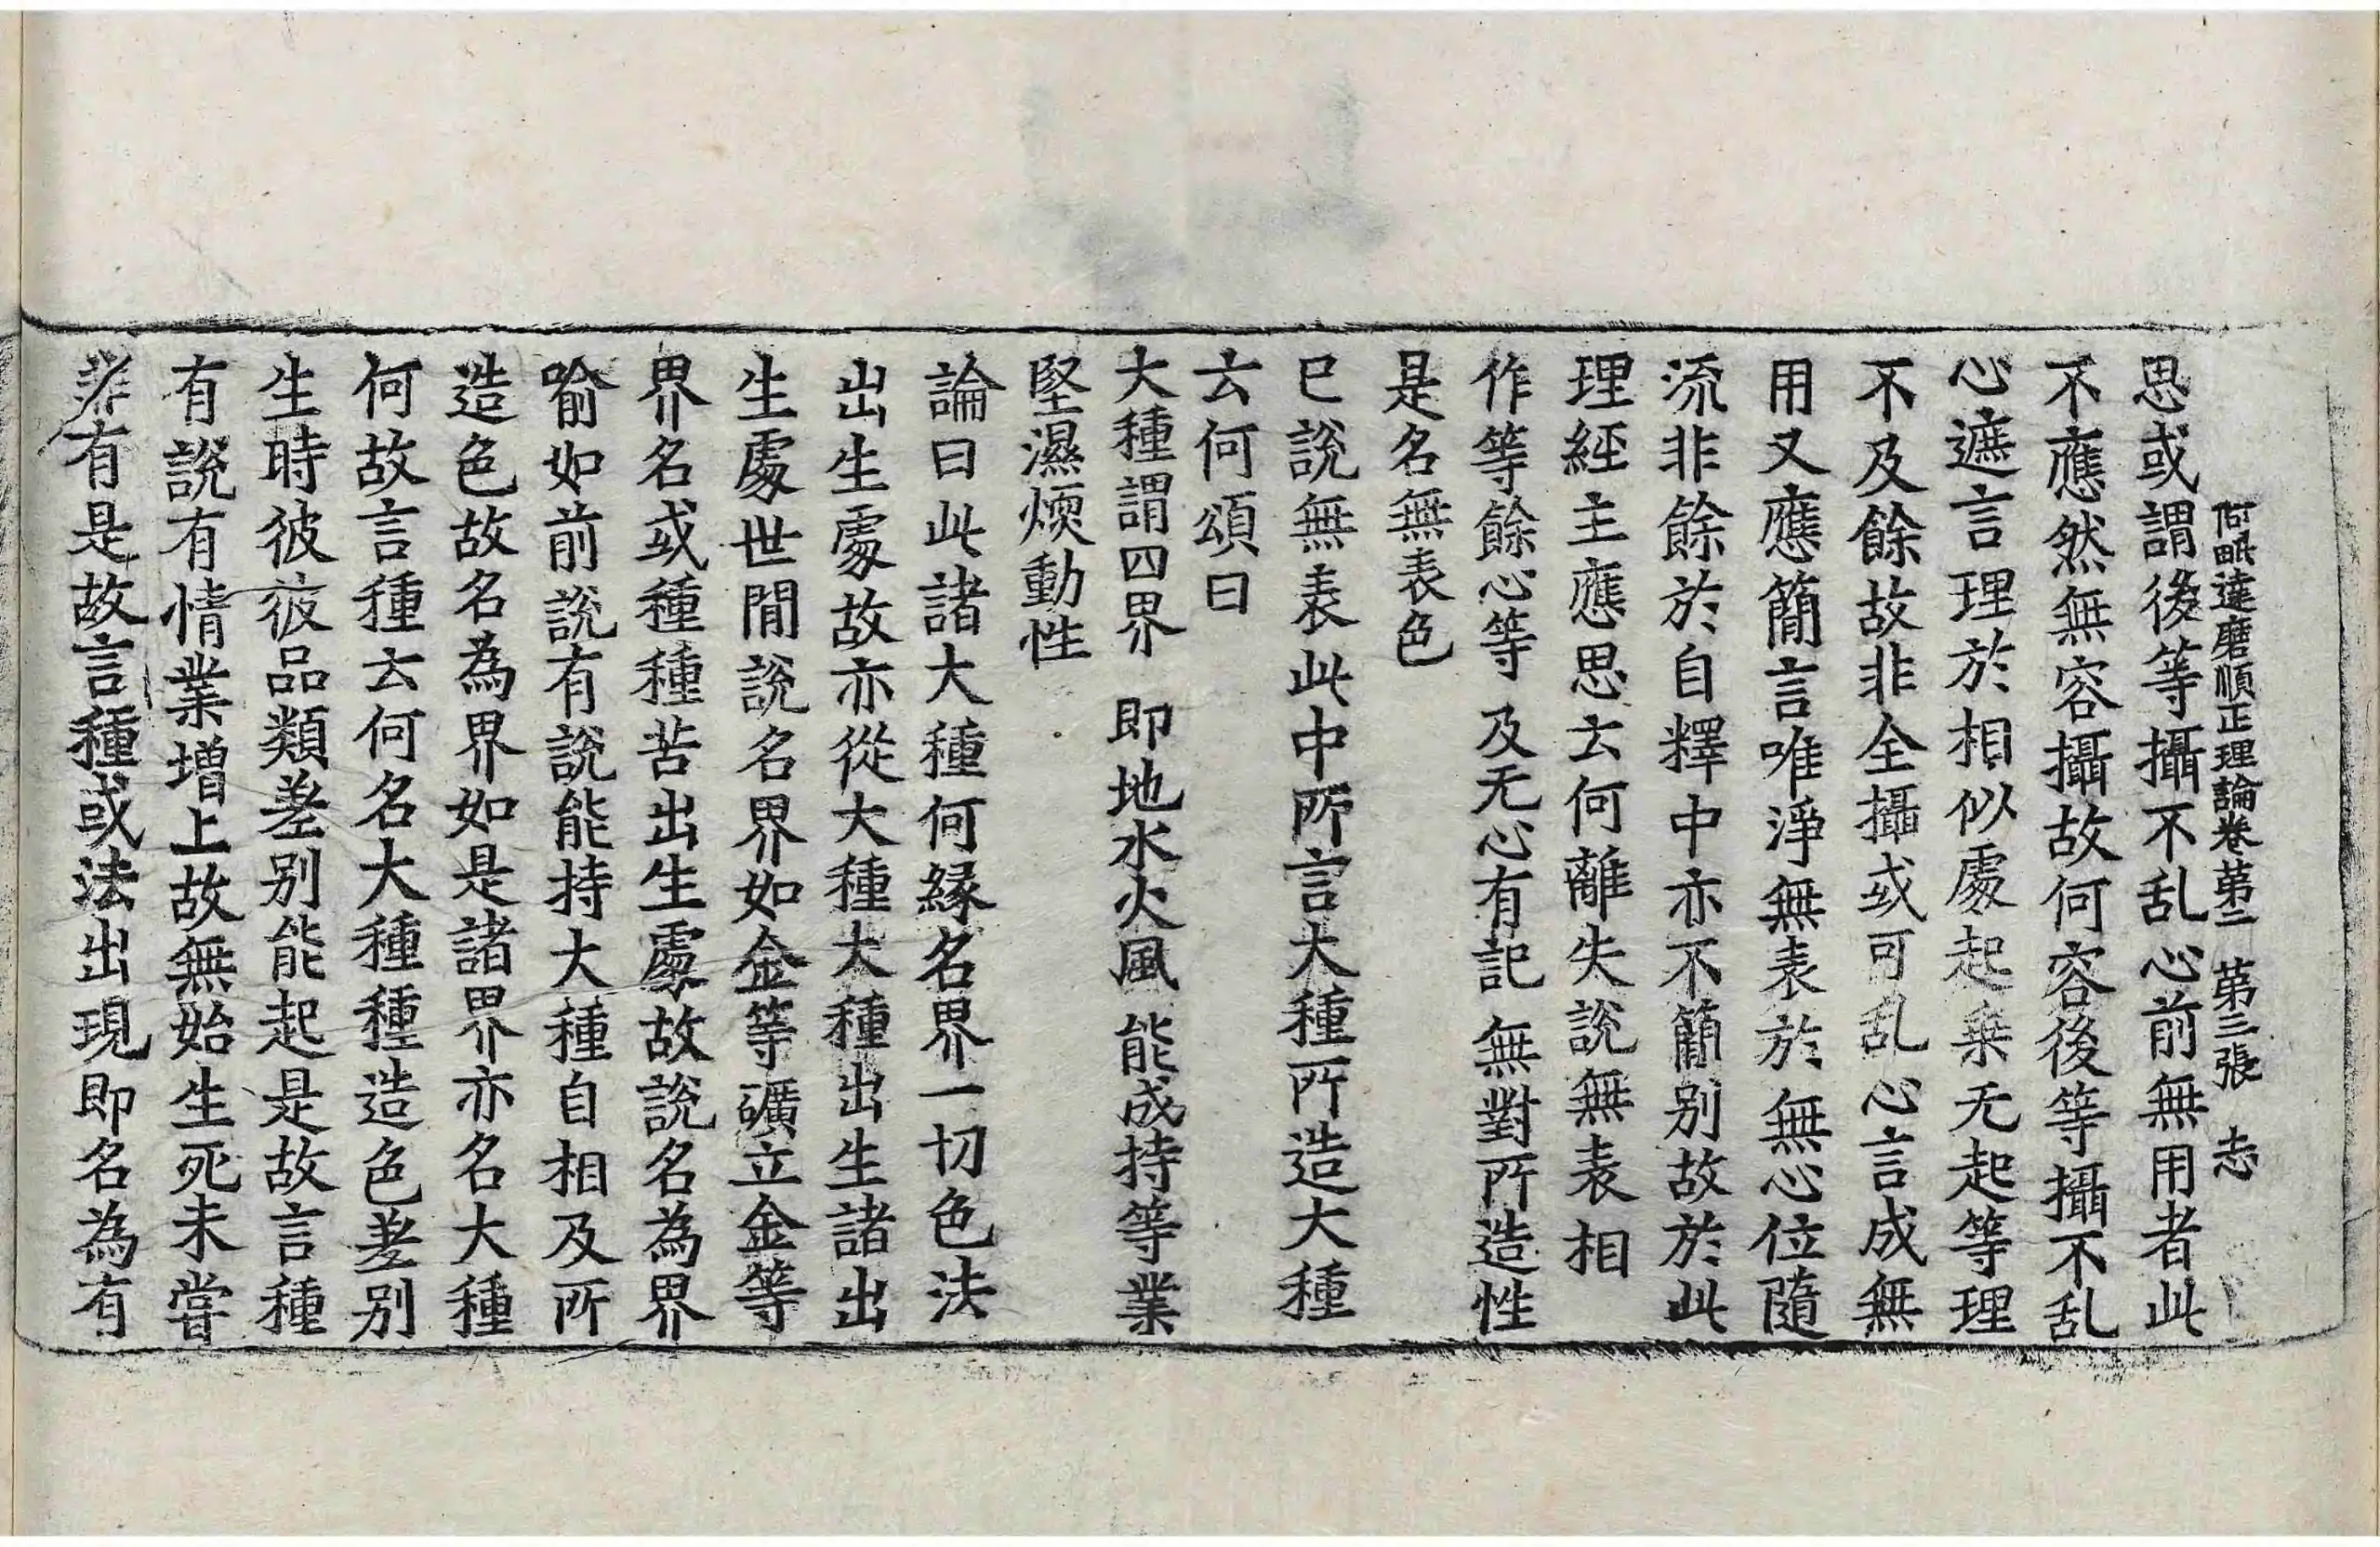 阿毗達磨順正理論卷第二　第三張　志
思或謂後等攝不乱心前無用者此
不應然無容攝故何容後等攝不乱
心遮言理於相似處起乗无起等理
不及餘故非全攝或可乱心言成無
用又應簡言唯淨無表於無心位隨
流非餘於自釋中亦不簡別故於此
理經主應思云何離失說無表相
作等餘心等　及无心有記　無對所造性
是名無表色
已說無表此中所言大種所造大種
云何頌曰
大種謂四界　即地水火風　能成持等業
堅濕煗動性
論曰此諸大種何緣名界一切色法
出生處故亦從大種大種出生諸出
生處世間說名界如金等礦立金等
界名或種種苦出生處故說名為界
喻如前說有說能持大種自相及所
造色故名為界如是諸界亦名大種
何故言種云何名大種種造色差別
生時彼彼品類差別能起是故言種
有說有情業增上故無始生死未嘗
非有是故言種或法出現即名為有